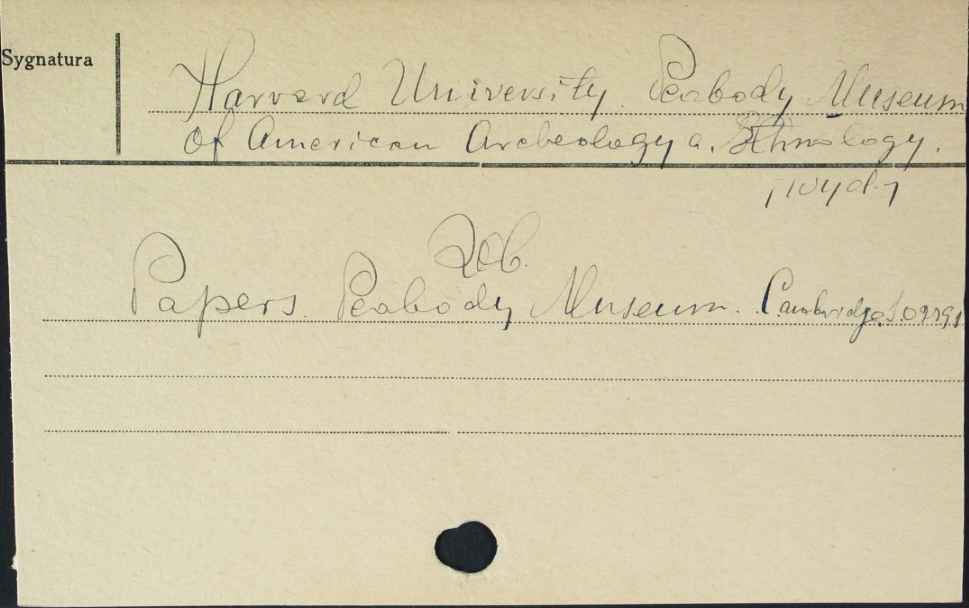 Sygnatura
Harvard University. Peabody Museum
Of American Archeology a. Ethnology.
/wyd./
Zob.
Papers. Peabody Museum. Cambridge